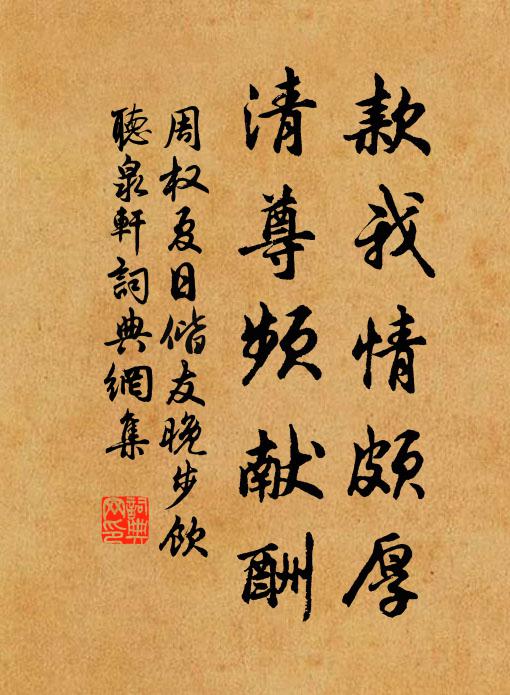 款我情頗厚
清尊頻献酬
周权夏日偕友晚步飲
聴泉軒詞典網集
詞典
网印